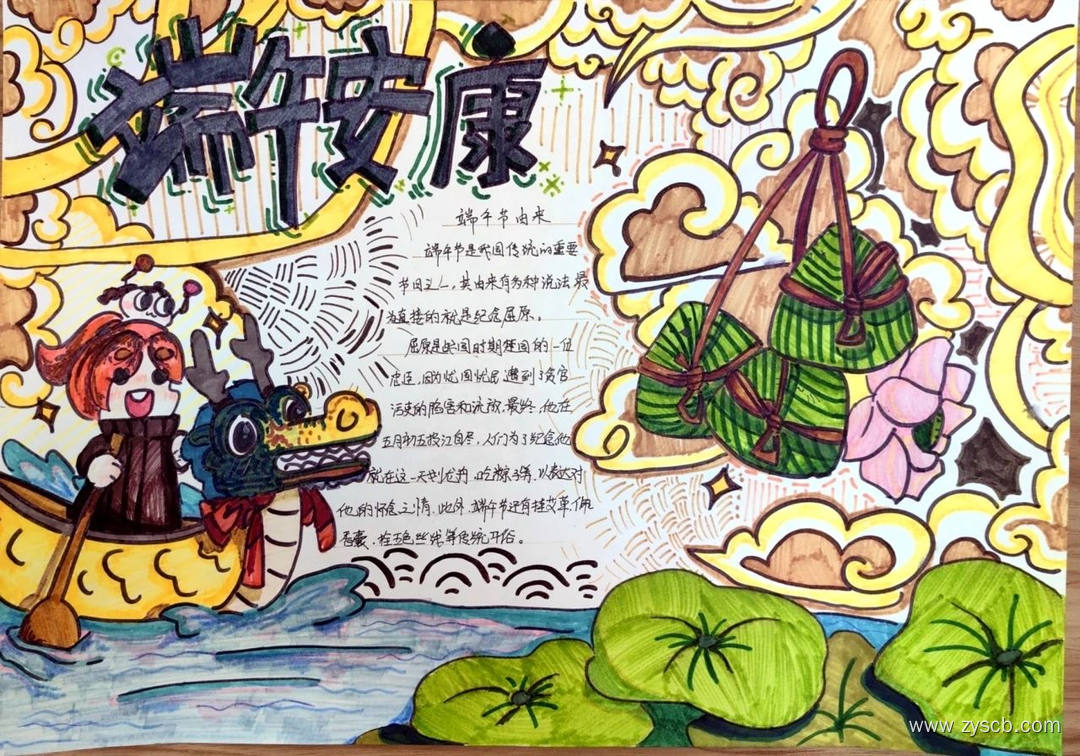 端午安康
端午节由来
端午节是我国传统的重要
节日之一,其由来有多种说法,最
为直接的就是纪念屈原。
屈原是战国时期楚国的一位
忠臣,因为忧国忧民,遭到了贪官
污吏的陷害和流放,最终,他在
五月初五投江自尽,人们为了纪念他
就在这一天划龙舟、吃粽子等,以表达对
他的怀念之情,此外,端午节还有挂艾草、佩
香囊、拴五色丝线等传统习俗。
www.zyscb.com